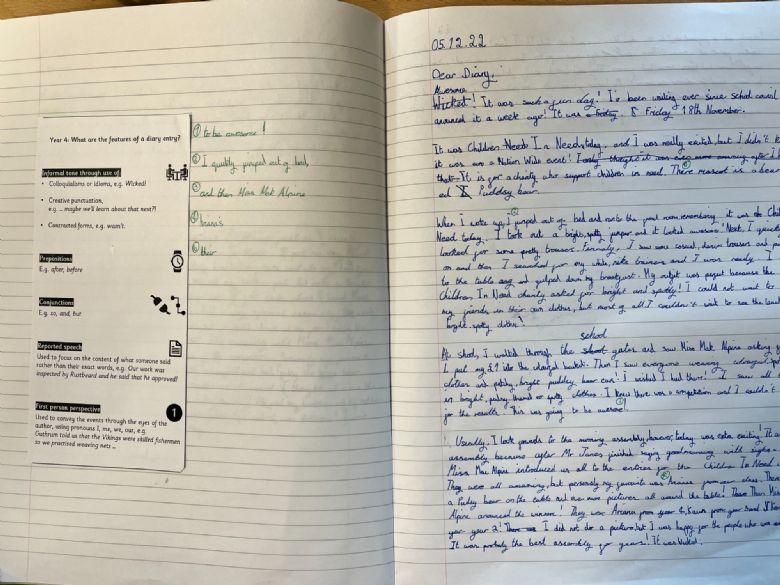 Year 4: What are the features of a diary entry?
Informal tone through use of:
• Colloquialisms or idioms, e.g. Wicked!
• Creative punctuation,
e.g. ... maybe we'll learn about that next?!
• Contracted forms, e.g. wasn't.
Prepositions
E.g. after, before
Conjunctions
E.g. so, and, but
Reported speech
Used to focus on the content of what someone said
rather than their exact words, e.g. Our work was
inspected by Rustbeard and he said that he approved!
First person perspective
1
Used to convey the events through the eyes of the
author, using pronouns I, me, we, our, e.g.
Guthrum told us that the Vikings were skilled fishermen
so we practised weaving nets ...
① to be awesome!
② I quickly jumped out of bed,
③ and then Miss Mak Alpine
④
⑤ their
05.12.22
Dear Diary,
Awesome
Wicked! It was such a fun day! I'v been waiting ever since school
a week ago! It was Friday 18th November.
It was Children Need In Need today, and I was really exited, but I didn't
it was a Nation Wide event!
It is for a charity who support children in need. There mascot is a bear
Puddsey bear.
When I woke up, I jumped out of bed and remembering it was Chil
Need today. I took out a bright, spotty jumper and it looked awesome! Next, I
looked for some pretty trousers. I saw some casual, trousers and
on and then I searched for my white, nike trainers and I was ready. I
to the table and gulped down my breakfast. My outfit was because the
Children In Need charity asked for bright and spotty! I could not want to
my friends in their own clothes, but most of all I couldn't wait to see the
bright spotty clothes!
school
At shool, I walked through the gates and saw Miss Mak Alpine asking
I put my £1 into the bucket. Then I saw everyone wearing
clothes and bright, pudsey bear ears! I wished I had them! I saw all
in bright, or spotty clothes. I knew there was a competition and I couldn't
for the results. This was going to be awesome!
Usually, I look forwards to the morning assembly, however, today was extra exciting! It
assembly because after Mr Jones finished saying good morning with
Miss Mac Alpine introduced us all to the entries for the Children In Need
They were all amazing, but personaly my favourite was from our class. There
a Pudsey Bear on the table and more pictures all around the table! Then Miss
Alpine the winners! They were from year
year 2! I did not do a picture but I was happy for the people who won
It was probably the best assembly for years! It was